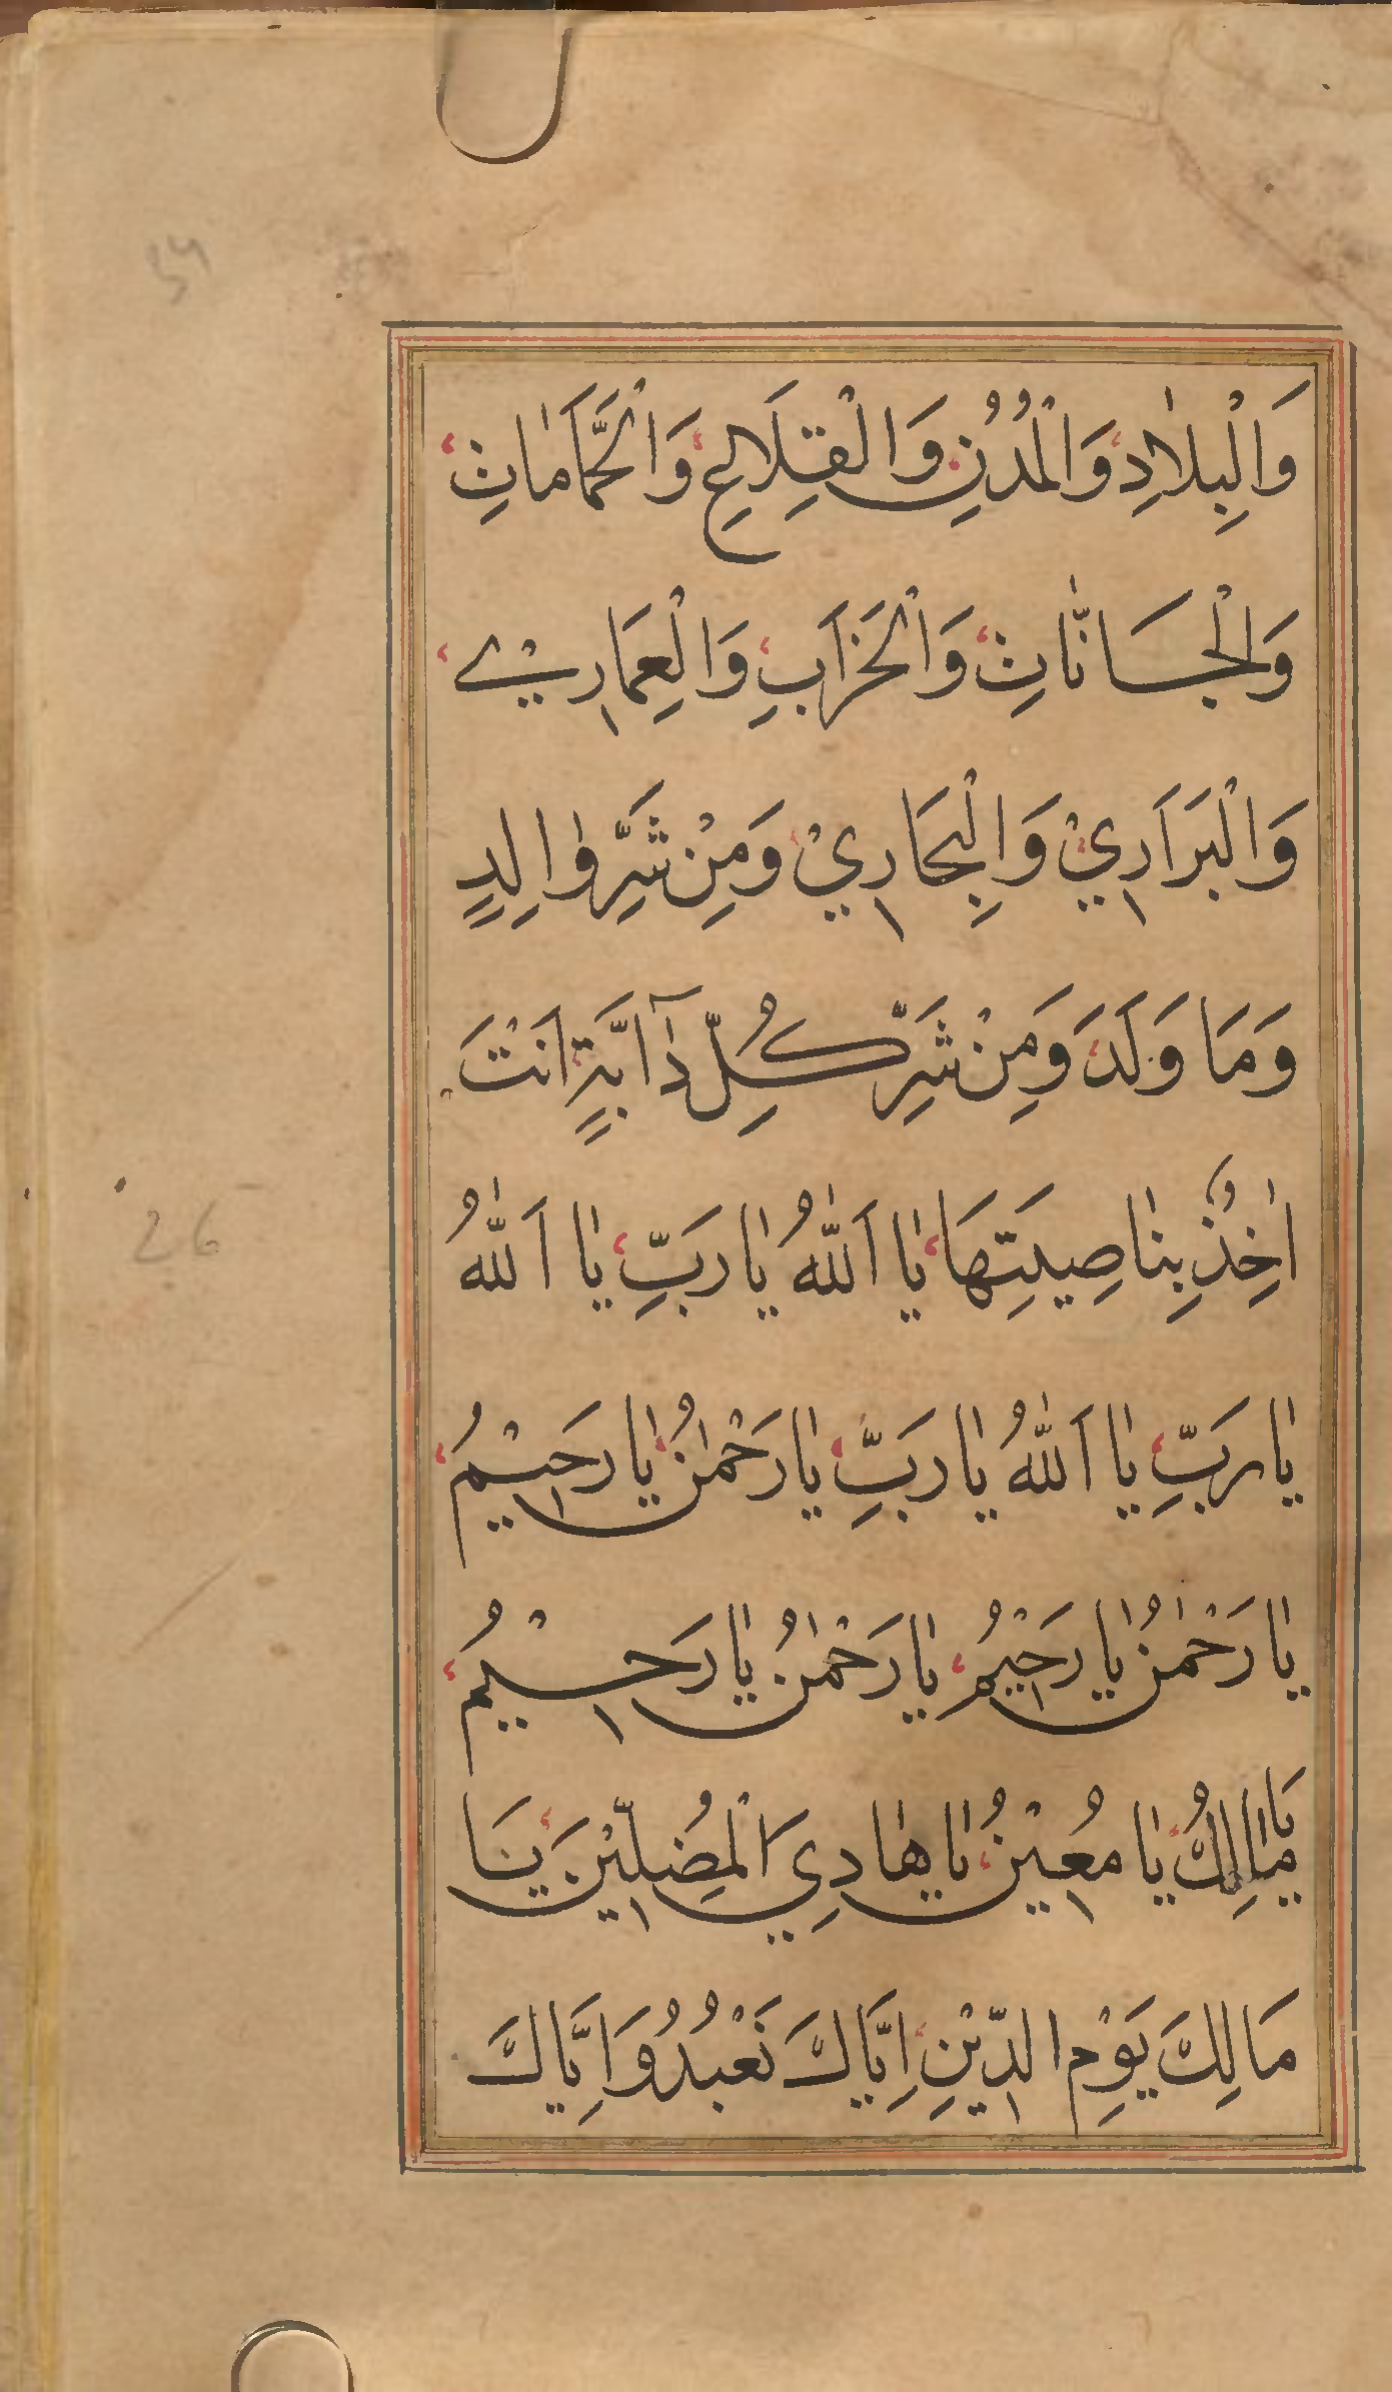 وَالْبِلٰادِ وَالْمُدُنِ وَالْقِلَاعِ وَالْحَمَّامٰاتِ
وَالْجَسَانّٰاتِ وَالْخَرَابِ وَالْعِمَارِيْ
وَالْبَرَارِيْ وَالْبِحَارِيْ وَمِنْ شَرِّ وٰالِدٍ
وَمَا وَلَدَ وَمِنْ شَرِّ كُلِّ دٰآبَّةٍ اَنْتَ
اٰخِذٌ بِنٰاصِيَتِهَا يٰا اَللّٰهُ يٰارَبِّ يٰا اَللّٰهُ
يٰارَبِّ يٰا اَللّٰهُ يٰارَبِّ يٰارَحْمٰنُ يٰارَحِيْمُ
يٰارَحْمٰنُ يٰارَحِيْمُ يٰارَحْمٰنُ يٰارَحِيْمُ
يٰا مٰالِكُ يٰا مُعِيْنُ يٰاهٰادِيَ الْمُضِلِّيْنَ يَا
مَالِكَ يَوْمِ الدِّيْنِ اِيَّاكَ نَعْبُدُ وَاِيَّاكَ
26